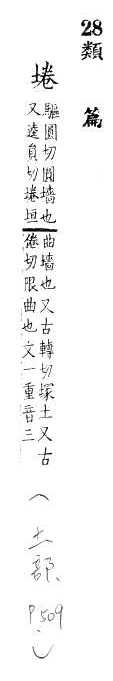 28類篇
埢
驅圓切圓墻也曲墻也又古轉切塚土又古
又逵員切埢垣倦切限曲也文一重音三
(土部、P509)